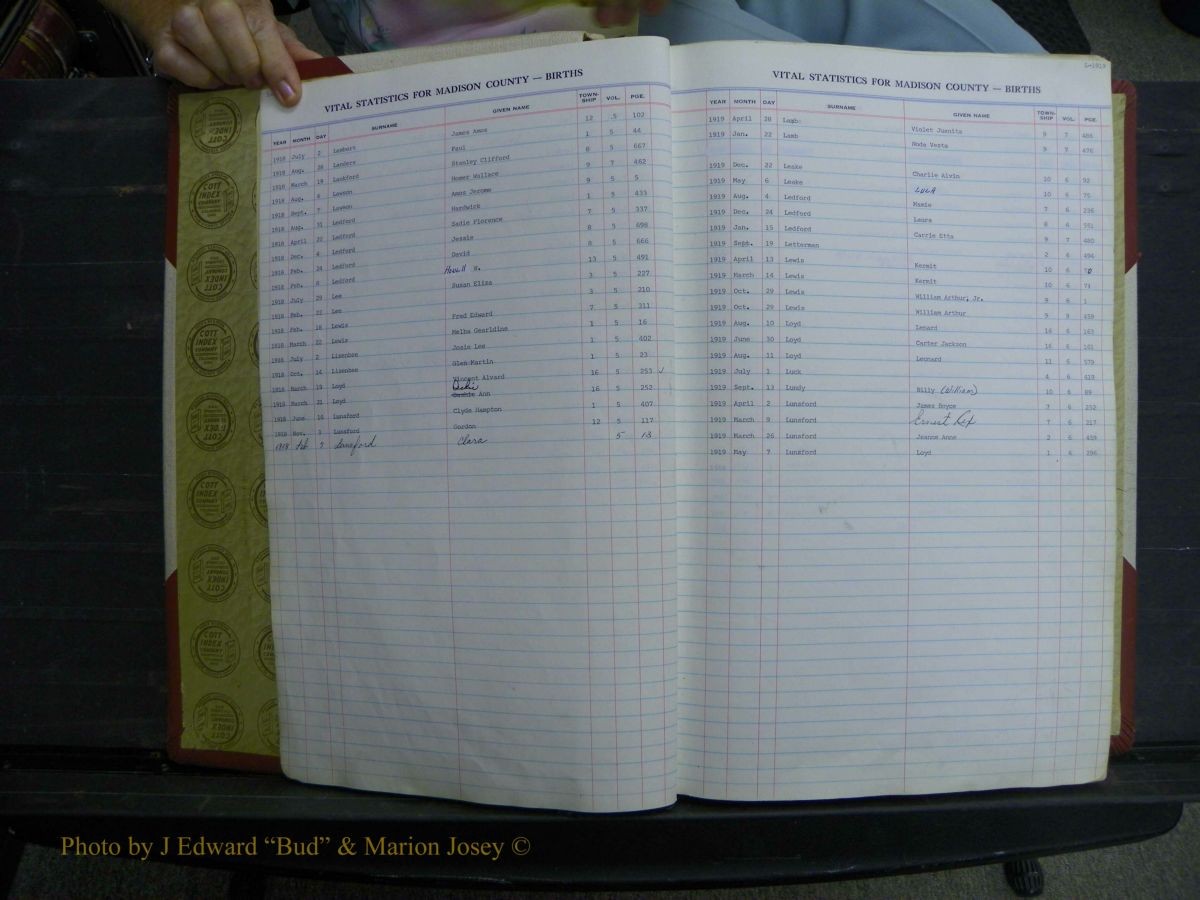 VITAL STATISTICS FOR MADISON COUNTY — BIRTHS
YEAR MONTH DAY SURNAME GIVEN NAME TOWN-SHIP VOL. PGE.
1918 July 2 Lambert James Amos 12 5 102
1918 Aug. 28 Landers Paul 1 5 44
1918 March 19 Lankford Stanley Clifford 8 5 667
1918 Aug. 6 Lawson Homer Wallace 9 7 462
1918 Sept. 7 Lawson Amos Jerome 9 5 5
1918 Aug. 31 Ledford Hardwick 1 5 433
1918 April 22 Ledford Sadie Florence 7 5 337
1918 Dec. 4 Ledford Jessie 8 5 698
1918 Feb. 24 Ledford David 8 5 666
1918 Feb. 8 Ledford Howell H. 13 5 491
1918 July 29 Lee Susan Eliza 3 5 227
1918 Feb. 22 Lee 3 5 210
1918 Feb. 18 Lewis Fred Edward 7 5 311
1918 March 22 Lewis Melba Gearldine 1 5 16
1918 July 2 Lisenbee Josie Lee 1 5 402
1918 Oct. 14 Lisenbee Glen Martin 1 5 23
1918 March 19 Loyd Vincent Alvard 16 5 253 ✓
1918 March 21 Loyd Ann 16 5 252
1918 June 16 Lunsford Clyde Hampton 1 5 407
1918 Nov. 3 Lunsford Gordon 12 5 117
1918 Feb 5 Lunsford Clara 5 13
L-1919
VITAL STATISTICS FOR MADISON COUNTY — BIRTHS
YEAR MONTH DAY SURNAME GIVEN NAME TOWN-SHIP VOL. PGE.
1919 April 28 Lamb Violet Juanita 9 7 486
1919 Jan. 22 Lamb Noda Vesta 9 7 476
1919 Dec. 22 Leake Charlie Alvin 10 6 92
1919 May 6 Leake LULA 10 6 75
1919 Aug. 4 Ledford Mamie 7 6 236
1919 Dec. 24 Ledford Laura 8 6 551
1919 Jan. 15 Ledford Carrie Etta 9 7 480
1919 Sept. 19 Letterman 2 6 494
1919 April 13 Lewis Kermit 10 6 70
1919 March 14 Lewis Kermit 10 6 71
1919 Oct. 29 Lewis William Arthur, Jr. 9 6 1
1919 Oct. 29 Lewis William Arthur 9 9 459
1919 Aug. 10 Loyd Lenard 16 6 163
1919 June 30 Loyd Carter Jackson 16 6 161
1919 Aug. 11 Loyd Leonard 11 6 579
1919 July 1 Luck 4 6 619
1919 Sept. 13 Lundy Billy (William) 10 6 89
1919 April 2 Lunsford James Boyce 3 6 252
1919 March 9 Lunsford Ernest Rex 7 6 217
1919 March 26 Lunsford Jeanne Anne 2 6 459
1919 May 7 Lunsford Loyd 1 6 296
COTT INDEX COMPANY
Photo by J Edward “Bud” & Marion Josey ©